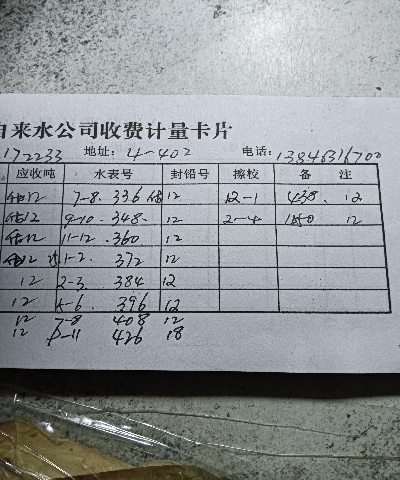 自来水公司收费计量卡片
172233 地址: 4-402 电话: 13846316700
应收吨 水表号 封铅号 擦校 备 注
估12 7-8. 336 估 12 12-1 438. 12
估12 9-10. 348. 12 2-4 450 12
估12 11-12 .360 12
估12 1-2. 372 12
12 2-3. 384 12
12 5-6. 396 12
12 7-8 408 12
12 426 18